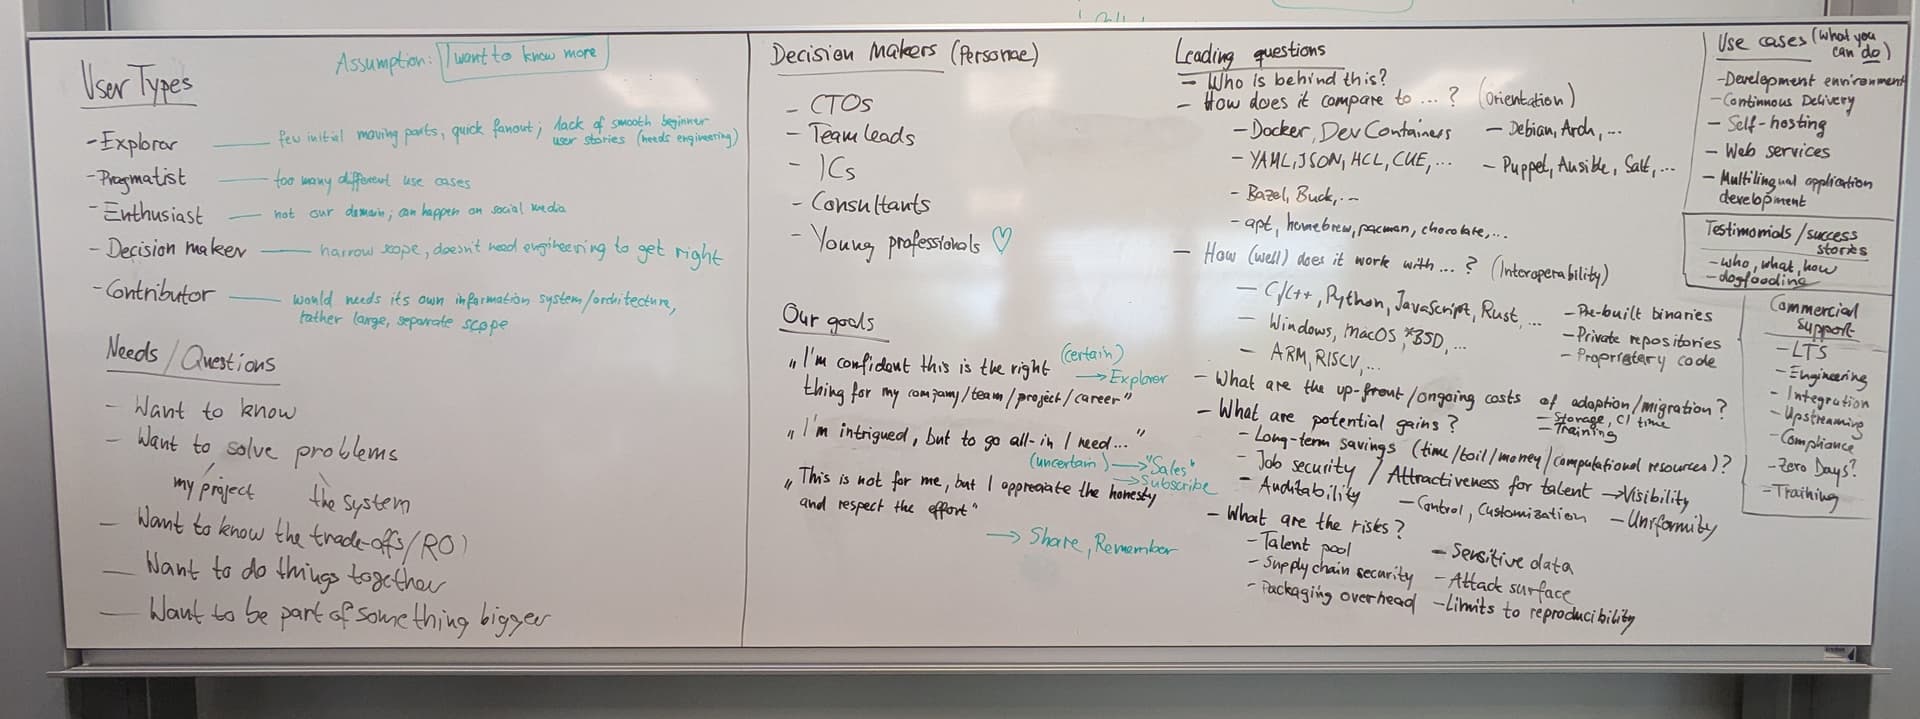 Assumption: I want to know more
User Types
- Explorer — few initial moving parts, quick fanout; lack of smooth beginner
user stories (needs engineering)
- Pragmatist — too many different use cases
- Enthusiast — not our domain; can happen on social media
- Decision maker — narrow scope, doesn't need engineering to get right
- Contributor — would needs its own information system/architecture,
rather large, separate scope
Needs/Questions
- Want to know
- Want to solve problems
my project the system
- Want to know the trade-offs/ROI
- Want to do things together
- Want to be part of something bigger
Decision Makers (Personae)
- CTOs
- Team leads
- ICs
- Consultants
- Young professionals ♡
Our goals
„I'm confident this is the right (certain)
→ Explorer
thing for my company/team/project/career"
„I'm intrigued, but to go all-in I need..."
(uncertain) → "Sales"
→ Subscribe
„This is not for me, but I appreciate the honesty
and respect the effort"
→ Share, Remember
Leading questions
- Who is behind this?
- How does it compare to ...? (Orientation)
- Docker, DevContainers - Debian, Arch, ...
- YAML, JSON, HCL, CUE, ... - Puppet, Ansible, Salt, ...
- Bazel, Buck, ...
- apt, homebrew, pacman, chocolate, ...
- How (well) does it work with ...? (Interoperability)
- C/C++, Python, JavaScript, Rust, ... - Pre-built binaries
- Windows, macOS, *BSD, ... - Private repositories
- ARM, RISCV, ... - Proprietary code
- What are the up-front/ongoing costs of adoption/migration?
- Storage, CI time
- Training
- What are potential gains?
- Long-term savings (time/toil/money/computational resources)?
- Job security / Attractiveness for talent → Visibility
- Auditability - Control, Customization - Uniformity
- What are the risks?
- Talent pool - Sensitive data
- Supply chain security - Attack surface
- Packaging overhead - Limits to reproducibility
Use cases (what you
can do)
- Development environment
- Continuous Delivery
- Self-hosting
- Web services
- Multilingual application
development
Testimonials/success
stories
- who, what, how
- dogfooding
Commercial
support
- LTS
- Engineering
- Integration
- Upstreaming
- Compliance
- Zero Days?
- Training